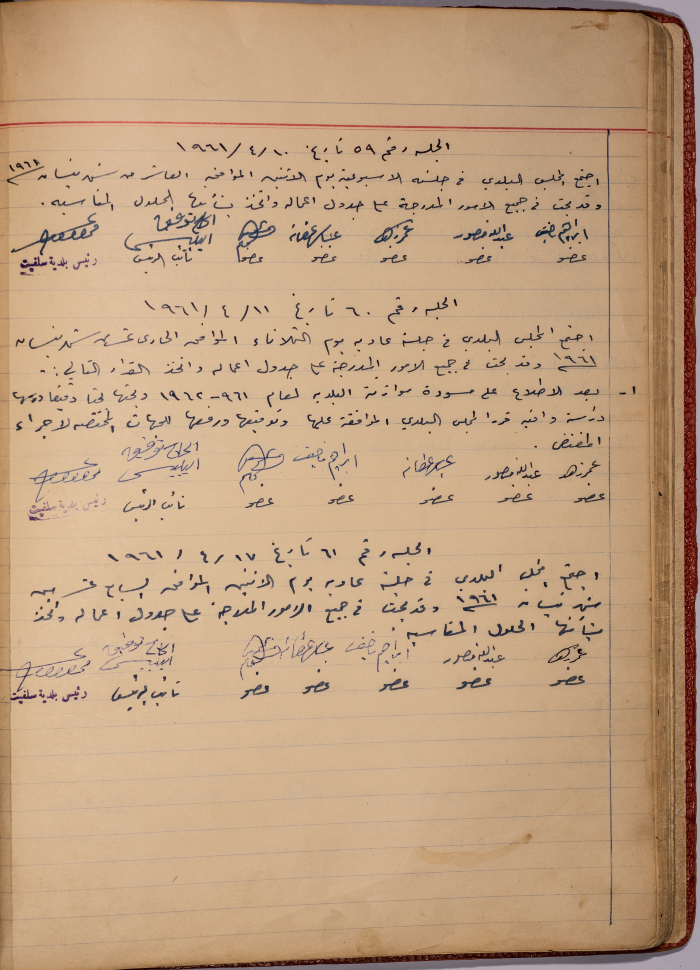 الجلسه رقم ٥٩ تاريخ ١٠ / ٤ / ١٩٦١
اجتمع المجلس البلدي في جلسته الاسبوعية يوم الاثنين الموافق العاشر من شهر نيسان ١٩٦١
وقد بحث في جميع الامور المدرجة على جدول اعماله واتخذ بشأنها الحلول المناسبه .
ابراهيم عبدالله منصور
عضو عضو عضو عضو عضو نائب الرئيس رئيس بلدية سلفيت
الجلسه رقم ٦٠ تاريخ ١١ / ٤ / ١٩٦١
اجتمع المجلس البلدي في جلسة عاديه يوم الثلاثاء الموافق الحادي عشر من شهر نيسان
١٩٦١ وقد بحث في جميع الامور المدرجة على جدول اعماله واتخذ القرار التالي : -
١- بعد الاطلاع على مسودة موازنة البلديه لعام ٩٦١-١٩٦٢ وبحثها بحثا دقيقا ودرسها
دراسة وافيه قرر المجلس البلدي الموافقة عليها وتوقيعها ورفعها للجهات المختصه لاجراء
المقتضى .
عبدالله منصور ابراهيم
عضو عضو عضو عضو عضو نائب الرئيس رئيس بلدية سلفيت
الجلسه رقم ٦١ تاريخ ١٧ / ٤ / ١٩٦١
اجتمع المجلس البلدي في جلسة عاديه يوم الاثنين الموافق السابع عشر من
شهر نيسان ١٩٦١ وقد بحث في جميع الامور المدرجة على جدول اعماله واتخذ
بشأنها الحلول المناسبه .
عبدالله منصور ابراهيم
عضو عضو عضو عضو عضو نائب الرئيس رئيس بلدية سلفيت